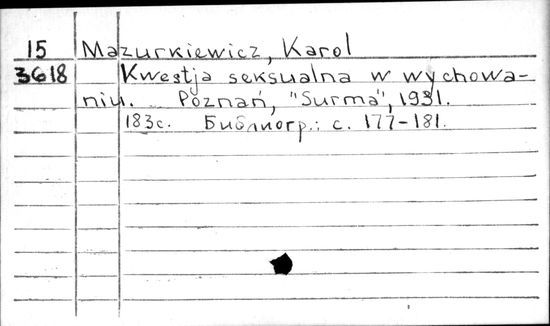 15 Mazurkiewicz, Karol
3618 Kwestja seksualna w wychowa-
niu. Poznań, "Surma", 1931.
183с. Библиогр.: с. 177-181.